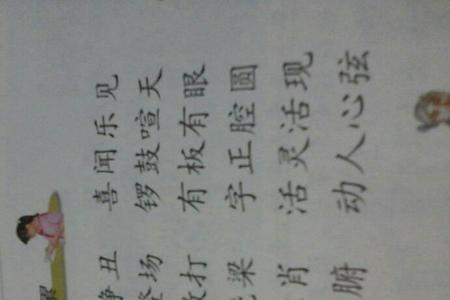 净丑 喜闻乐见
登场 锣鼓喧天
打 有板有眼
梁 字正腔圆
肖 活灵活现
腑 动人心弦